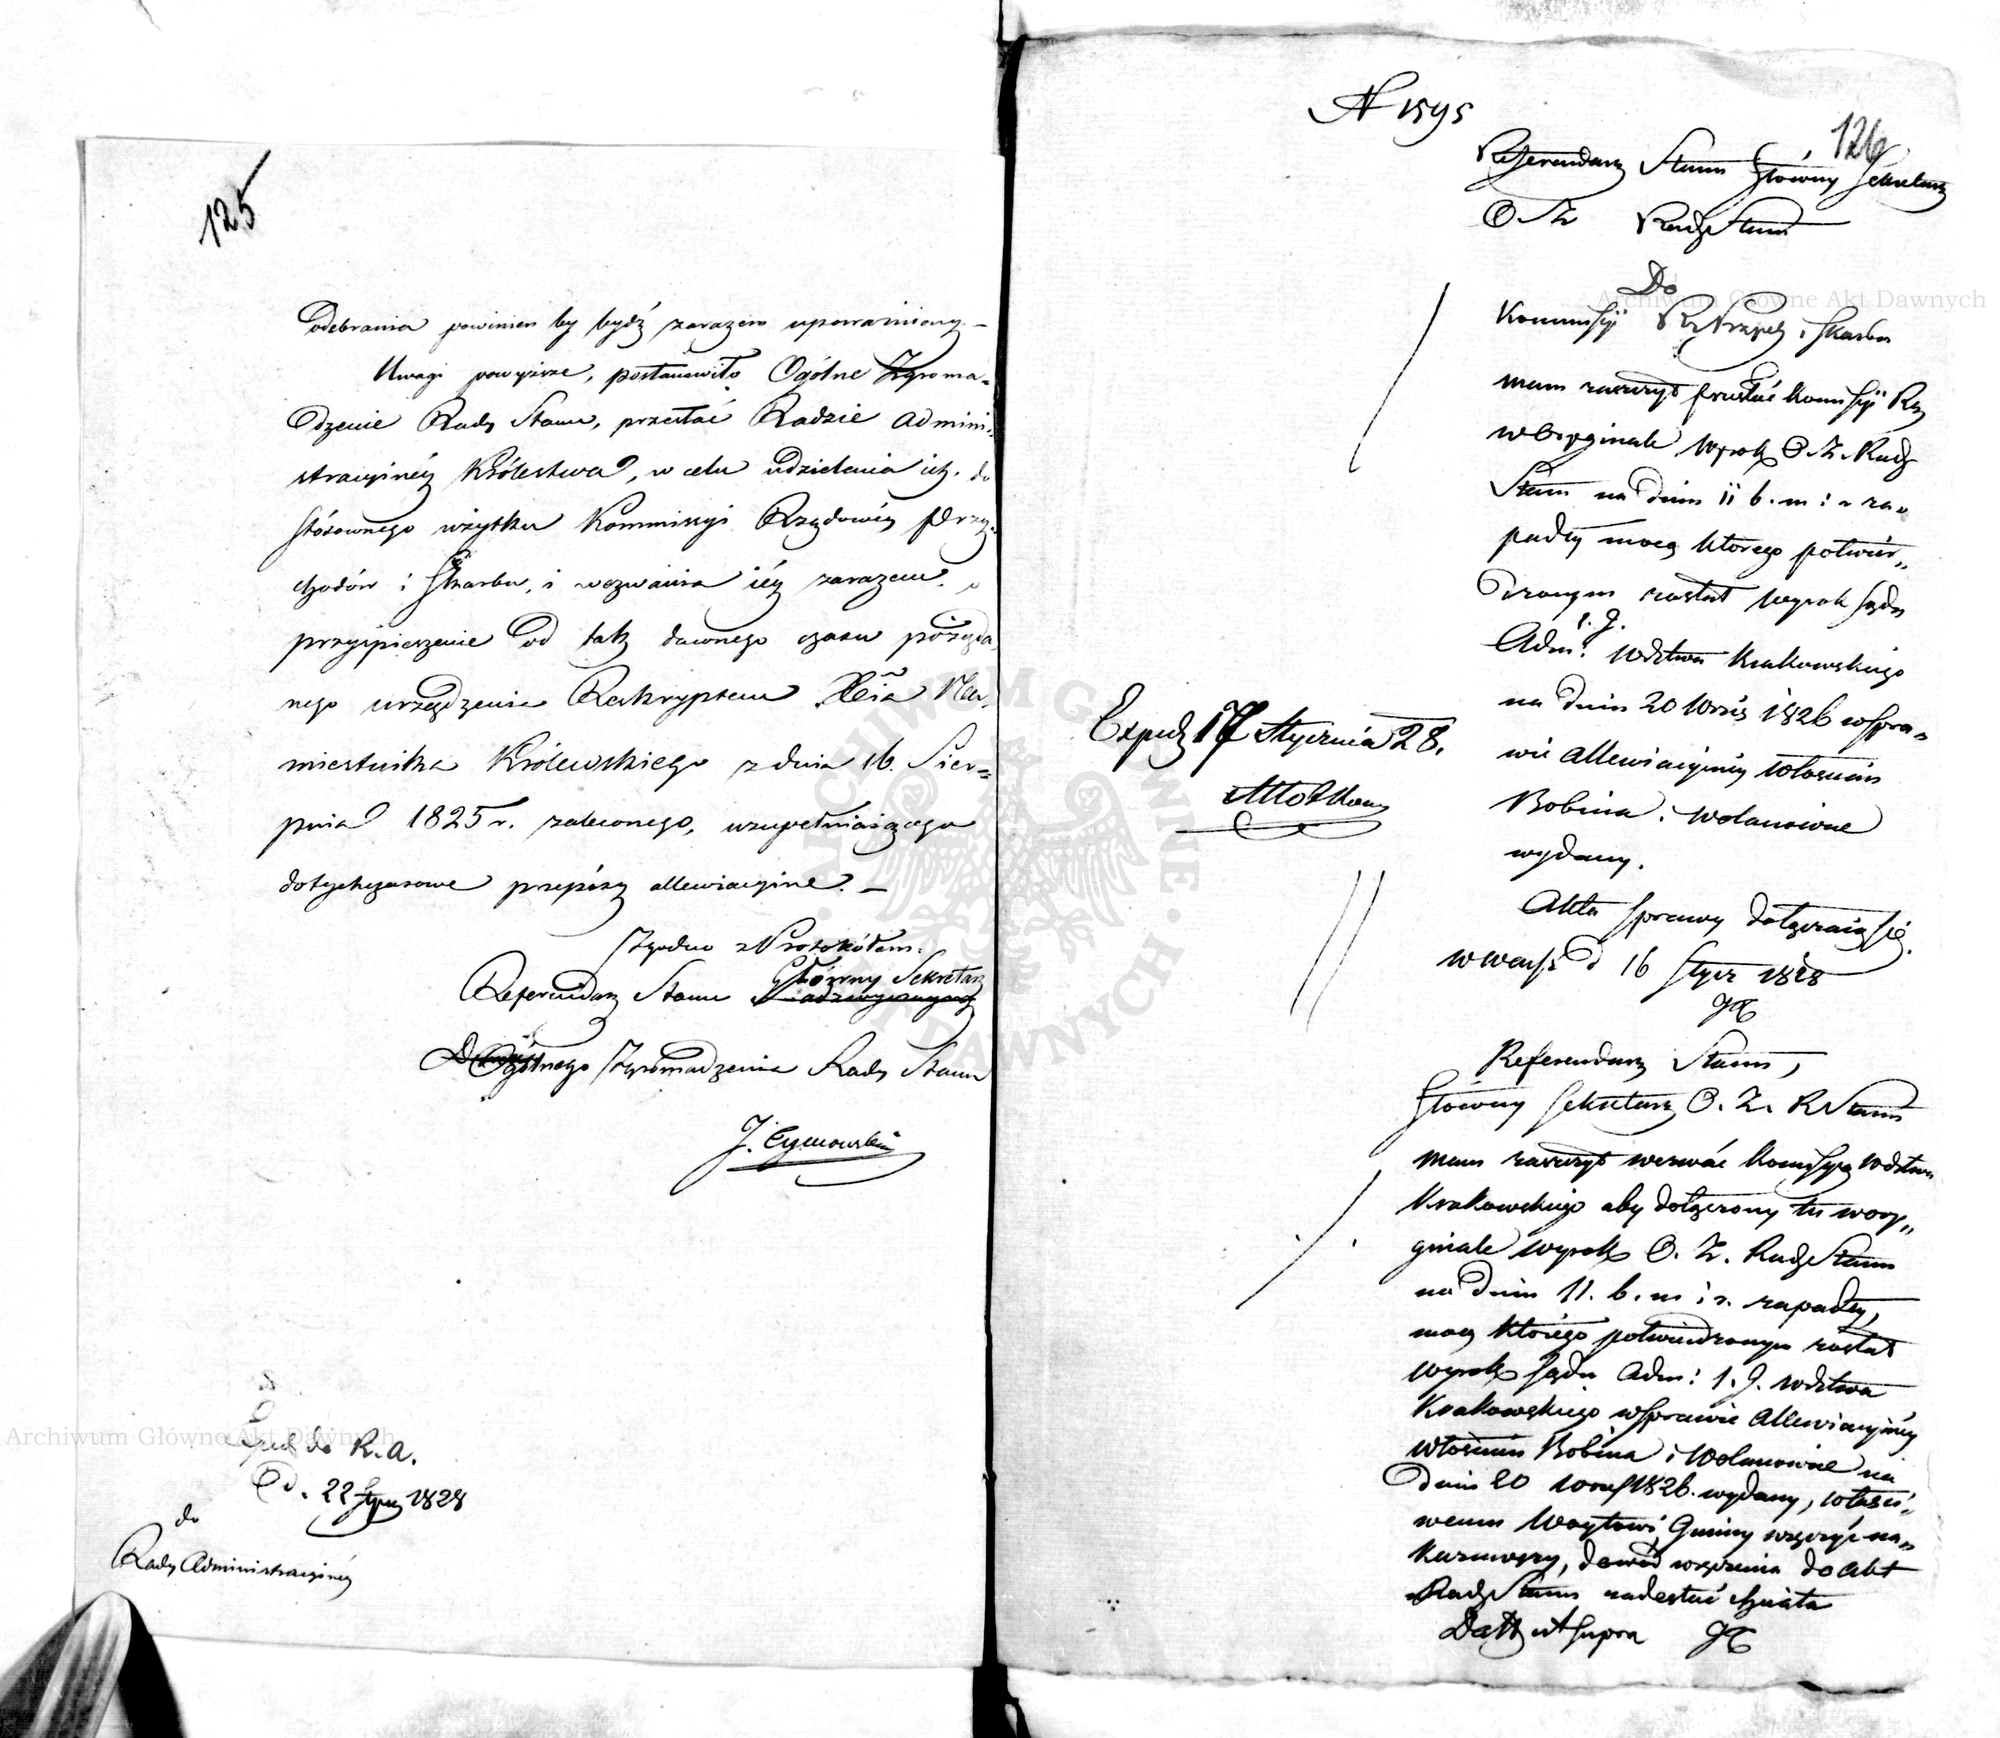 125
odebrania powinien by bydź zarazem upoważniony. —
Uwagi powyższe, postanowiło Ogólne Zgroma-
dzenie Rady Stanu, przesłać Radzie Admini-
stracyinéy Królestwa, w celu udzielenia ich, do
stósownego użytku Kommissyi Rządowéy Przy-
chodów i Skarbu, i wezwania iéy zarazem, o
przyśpieszenie od tak dawnego czasu pożąda
nego urządzenia Reskryptem Xcia Na-
miestnika Królewskiego z dnia 16. Sier-
pnia 1825 r. zaleconego, uzupełniaiącego
dotychczasowe przepisy allewiacyine. —
Zgodno z Protokółem.
Główny Sekretarz
Referendarz Stanu
Ogólnego Zgromadzenia Rady Stanu
do R. A.
d. 22 Stycz 1828
do
Rady Administracyinéy
Archiwum Główne Akt Dawnych
N 1595
126
Referendarz Stanu Główny Sekretarz
O. Z. Rady Stanu
Do
Kommissyi Rz Przych i Skarbu
mam zaszczyt przesłać Komissyi Rz
w Oryginale wyrok O. Z. Rady
Stanu na dniu 11 b. m: i r za-
padły mocą którego potwier-
dzonym został wyrok Sądu
Adm: I. J. Wdztwa Krakowskiego
na dniu 20 Wrześ 1826 w Spra-
wie Allewiacyiney Włościan
Bobina i Wolanowic
wydany.
Akta Sprawy dołączaią się.
w Warsz d 16 Stycz 1828
Exped 17 Stycznia 28.
Referendarz Stanu,
Główny Sekretarz O. Z. R Stanu
mam zaszczyt wezwać Komissyą Wdztwa
Krakowskiego aby dołączony tu w ory-
ginale wyrok O. Z. Rady Stanu
na dniu 11. b. m i r. zapadły,
mocą którego potwierdzonym został
wyrok Sądu Adm: I. J. Wdztwa
Krakowskiego w Sprawie Allewiacyinéy
Włościan Bobina i Wolanowic na
dniu 20 Wrześ 1826. wydany, właści-
wemu Woytowi Gminy wręczyć na-
kazawszy, dowód wręczenia do akt
Rady Stanu nadesłać chciała
Datt ut Supra
Archiwum Główne Akt Dawnych